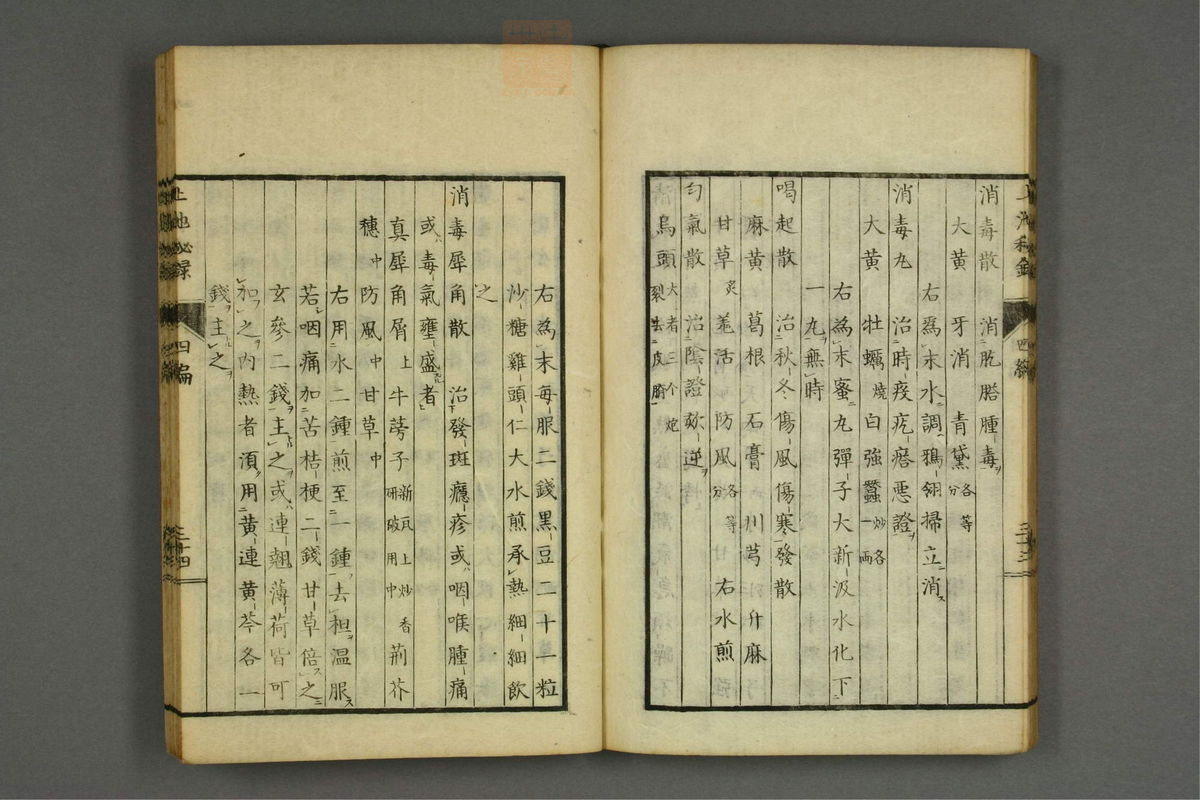 消毒散 消肐膊腫毒
大黄 牙消 青黛各等分
右爲末水調鵝翎掃立消
消毒丸 治時疫疙瘩悪證
大黄 牡蠣燒 白強蠶炒各一両
右爲末蜜丸彈子大新汲水化下
一丸無時
喝起散 治秋冬傷風傷寒發散
麻黄 葛根 石膏 川芎 升麻
甘草炙 羗活 防風各等分 右水煎
匀氣散 治陰證欬逆
烏頭大者三个炮裂去皮臍
四編
右為末毎服二錢黒豆二十一粒
沙糖雞頭仁大水煎承熱細細飲
之
消毒犀角散 治發斑癮疹或咽喉腫痛
或毒氣壅盛者
真犀角屑上 牛蒡子新瓦上炒香研破用中 荆芥
穗中 防風中 甘草中
右用水二鍾煎至一鍾去柤温服
若咽痛加苦桔梗二錢甘草倍之
玄參二錢主之或連翹薄荷皆可
加之内熱者湏用黄連黄芩各一
錢主之
四編
三十四